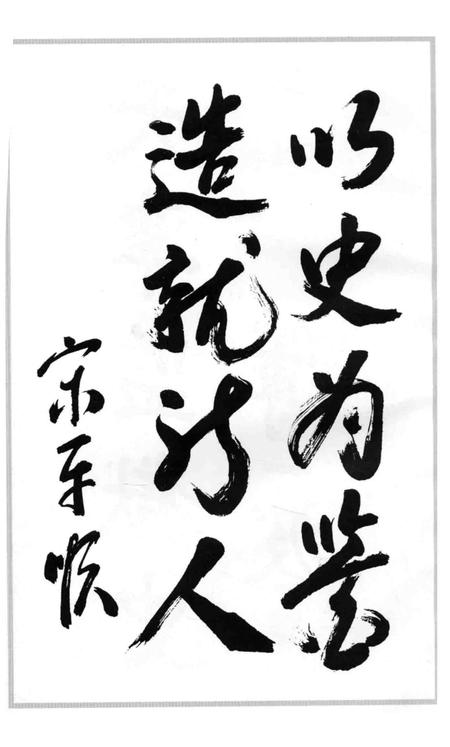 以史为鉴
造就新人
宋平顺